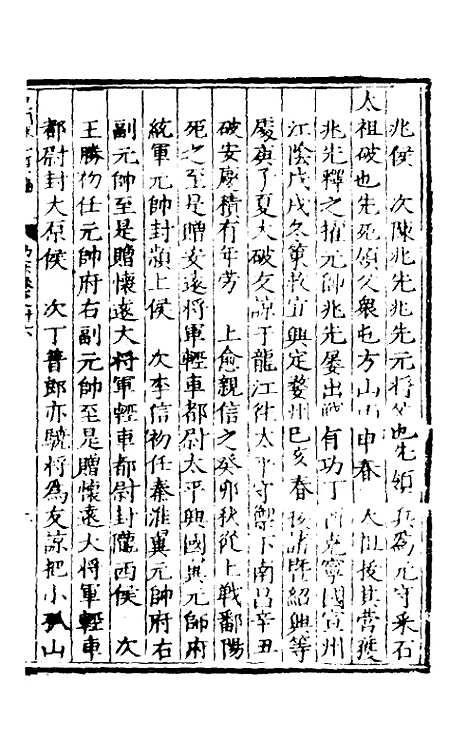 兆侯　次陳兆先兆先元將也先領兵為元守采石
太祖破也先死領久衆屯方山丙申春　太祖拔其營獲
兆先釋之擢元帥兆先屢出戰有功丁酉克寧國宣州
江陰戊戌冬策救宜興定婺州巳亥春諸曁紹興等
處庚子夏大破友諒于龍江從太平守禦下南昌辛丑
破安慶積有年勞　上愈親信之癸卯秋從上戰鄱陽
死之至是贈安遠將軍輕車都尉太平興國翼元帥府
統軍元帥封潁上侯　次李信初任秦淮翼元帥府右
副元帥至是贈懷遠大將軍輕車都尉封隴西侯　次
王勝初任元帥府右副元帥至是贈懷遠大將軍輕車
都尉封太原侯　次丁普郎亦驍將爲友諒把小孤山